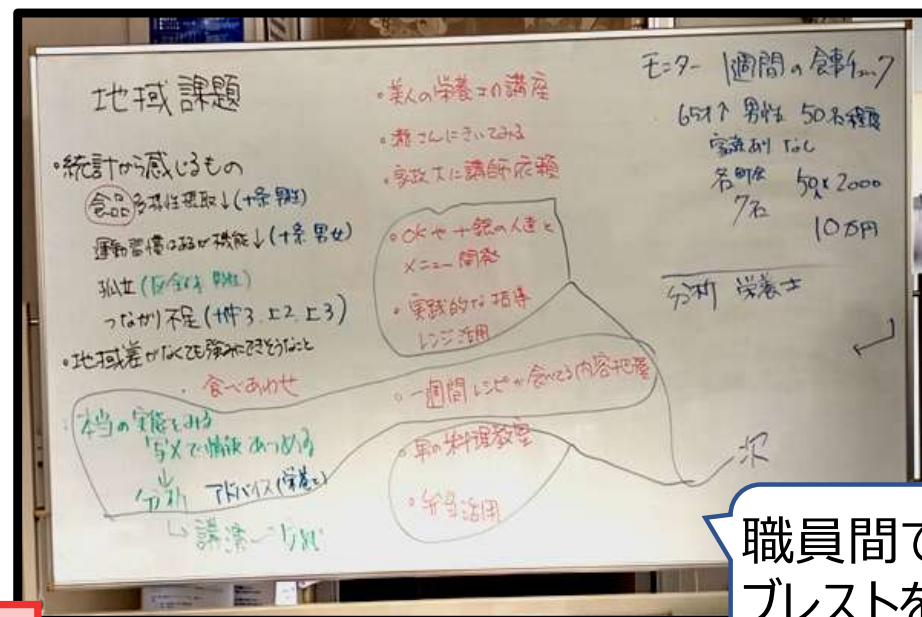 地域課題
・統計から感じるもの
食品多様性摂取↓(十条 男性)
運動習慣はあるが機能↓(十条 男女)
孤立(
つながり不足(十仲3. 上2. 上3)
・地域差がなくても強みにできそうなこと
・食べあわせ
・本当の実態をみる
写メで情報あつめる
↓
分析 アドバイス(栄養士)
↳講演
・美人の栄養士の講座
・さんにきいてみる
・家政大に講師依頼
・OKや十銀の人達と
メニュー開発
・実践的な指導
レンジ活用
・一週間レシピか食べてる内容把握
・男の料理教室
・弁当活用
モニター 1週間の食事チェック
65才↑ 男性 50名程度
家族あり なし
各町会
7名
50人×2000
10万円
分析 栄養士
次
職員間で
ブレストを